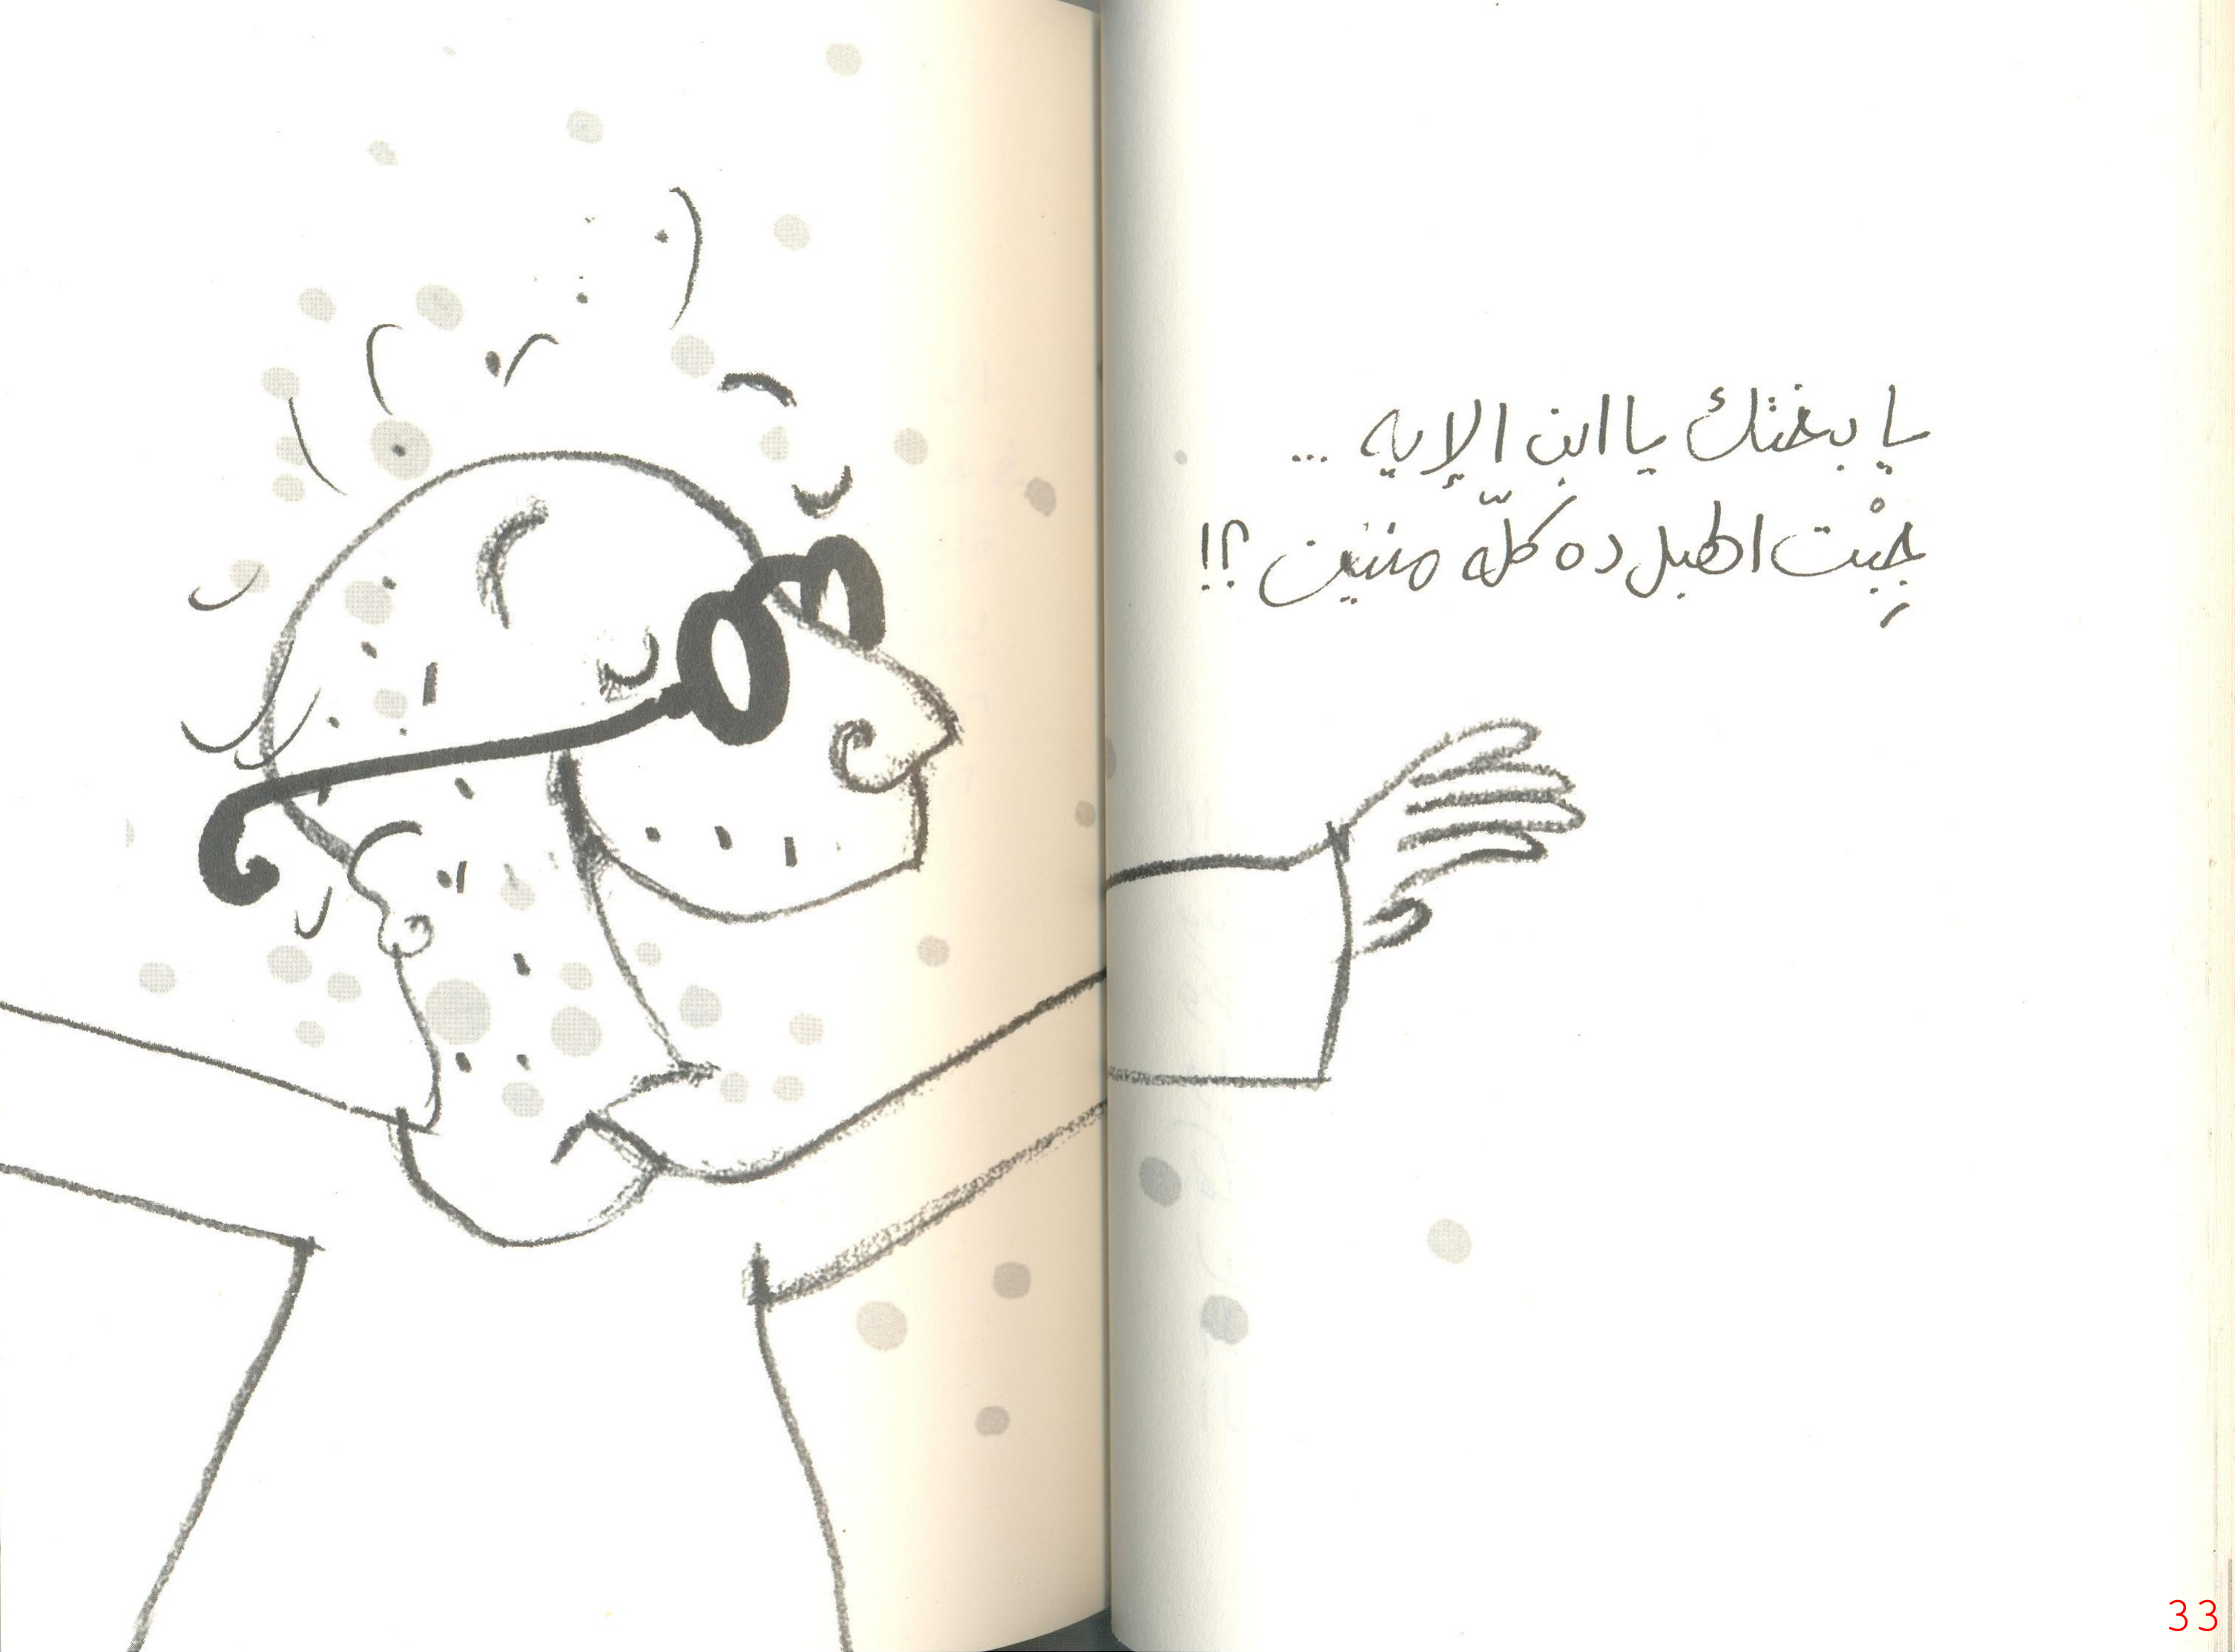 يا بختك يا ابن الإيه ...
جِبْت الهبل ده كلّه منين ؟!
33